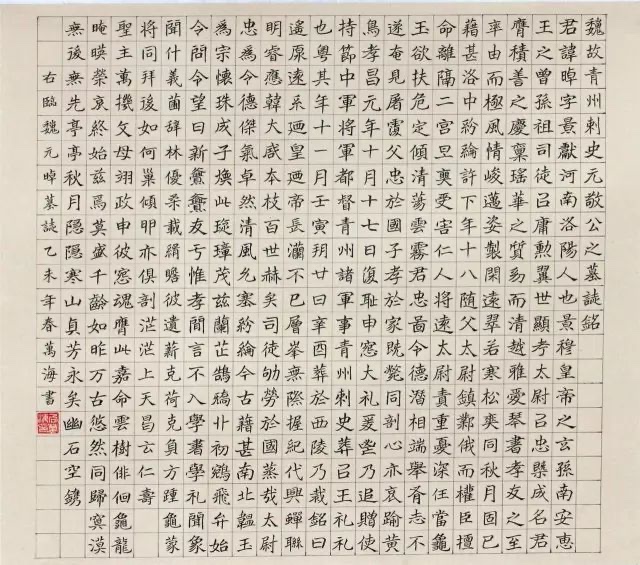 魏故青州刺史元敬公之墓誌銘
君諱暐字景獻河南洛陽人也景穆皇帝之玄孫南安惠
王之曾孫祖司徒召庸勲翼世顯考太尉召忠槩成名君
膺積善之慶稟瑤華之質昜而清越雅愛琴書孝友之至
率由而極風情峻邁姿製閑遠翠若寒松同秋月固已
藉甚中紛綸許下年十八随父太尉鎮鄴俄而權臣擅
命離隔二宮旦奭受害仁人將遠太尉責重憂深任當龜
玉欲扶危定傾清蕩雲霧君忠圖令德潛相端舉胥志不
遂奄見屠覆父忠於國子孝於家既斃同剖心亦哀踰黃
鳥孝昌元年十月十七日復恥申窓大礼爰乃追贈使
持節中軍將軍都督青州諸軍事青州刺史葬召王礼礼
也粤其年十一月壬寅朔廿日辛酉葬於西陵乃裁銘曰
遙原遠系廻皇廻帝長瀾不已層峯無際握紀代興蟬聯
明睿應大啟本枝百世赫矣司徒劬勞於國甚哉太尉
忠為令德傑氣卓然清風允塞紛綸今古藉甚南北韞玉
為宗懷珠成子煥此璇璋茂茲蘭芷鵠初鵷飛弁始
令問令望曰新亹亹友于惟孝閒言不入學書學礼聞象
聞什義菌辞林優柔載緝瞻彼遺薪克荷克負方踵龜蒙
將同拜後如何巢傾即亦俱剖茫茫上天曷云仁壽
聖主萬機文母翊政申彼窓魂膺此嘉命愁雲樹徘徊龜龍
晻暎榮哀終始茲焉莫盛千齡如昨万古悠然同歸冥漠
無後無先亭亭秋月隱隱寒山貞芳永矣幽石空鐫
右臨魏元暐墓誌乙未年春萬海書